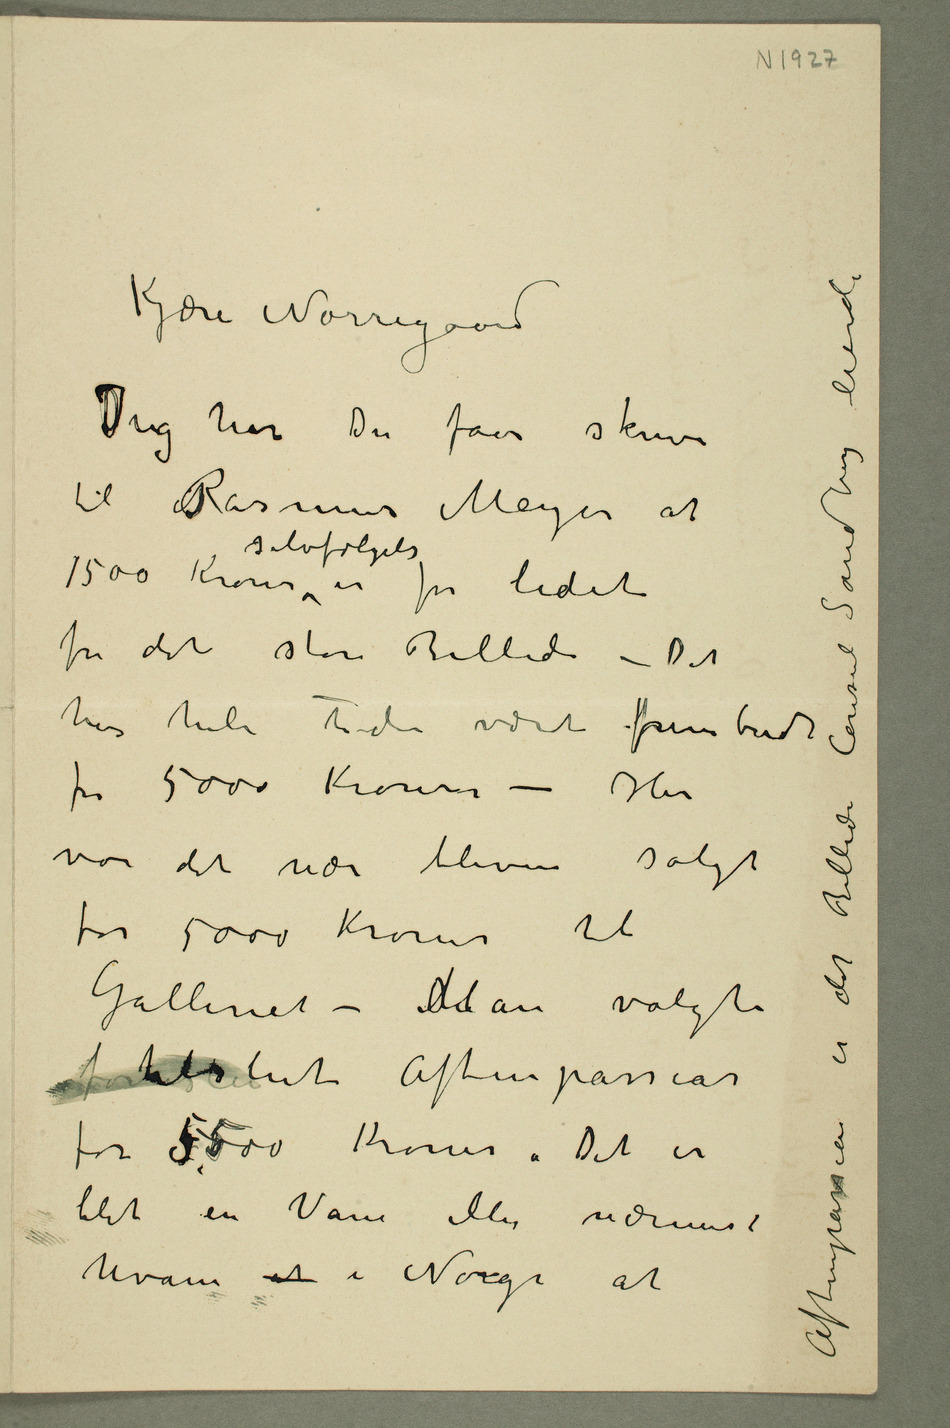 N 1927
Kjære Nørregaard
Dig har Du faar skrive
til Rasmus Meyer at
selvfølgelig
1500 Kroner er for lidet
for det store Billede – Det
har hele Tiden været frembudt
for 5000 Kroner – Her
var det nær bleven solgt
for 5000 Kroner til
Galleriet – Man valgte
tilslut Aftenpassiar
for 5500 Kroner. Det er
blet en Vane eller nærmest
Uvane at i Norge at
Aftenpassiar er det Billede Consul Sandberg eiende